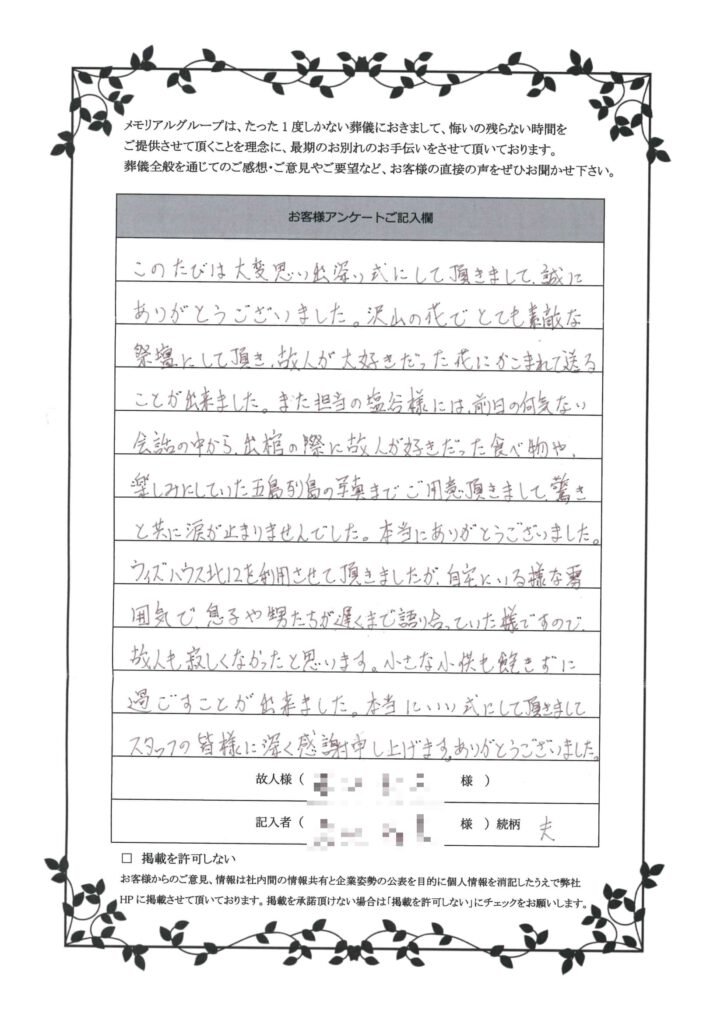 メモリアルグループは、たった1度しかない葬儀におきまして、悔いの残らない時間を
ご提供させて頂くことを理念に、最期のお別れのお手伝いをさせて頂いております。
葬儀全般を通じてのご感想・ご意見やご要望など、お客様の直接の声をぜひお聞かせ下さい。
お客様アンケートご記入欄
このたびは大変思い出深い式にして頂きまして、誠に
ありがとうございました。沢山の花でとても素敵な
祭壇にして頂き、故人が大好きだった花にかこまれて送る
ことが出来ました。また担当の塩谷様には、前日の何気ない
会話の中から、出棺の際に故人が好きだった食べ物や、
楽しみにしていた五島列島の写真までご用意頂きまして、驚き
と共に涙が止まりませんでした。本当にありがとうございました。
ウィズハウス北12を利用させて頂きましたが、自宅にいる様な雰
囲気で、息子や甥たちが遅くまで語り合っていた様ですので、
故人も寂しくなかったと思います。小さな小供も飽きずに
過ごすことが出来ました。本当にいい式にして頂きまして
スタッフの皆様に深く感謝申し上げます。ありがとうございました。
故人様（ 様 ）
記入者（ 様 ）続柄 夫
□ 掲載を許可しない
お客様からのご意見、情報は社内間の情報共有と企業姿勢の公表を目的に個人情報を消記したうえで弊社
HPに掲載させて頂いております。掲載を承諾頂けない場合は「掲載を許可しない」にチェックをお願いします。